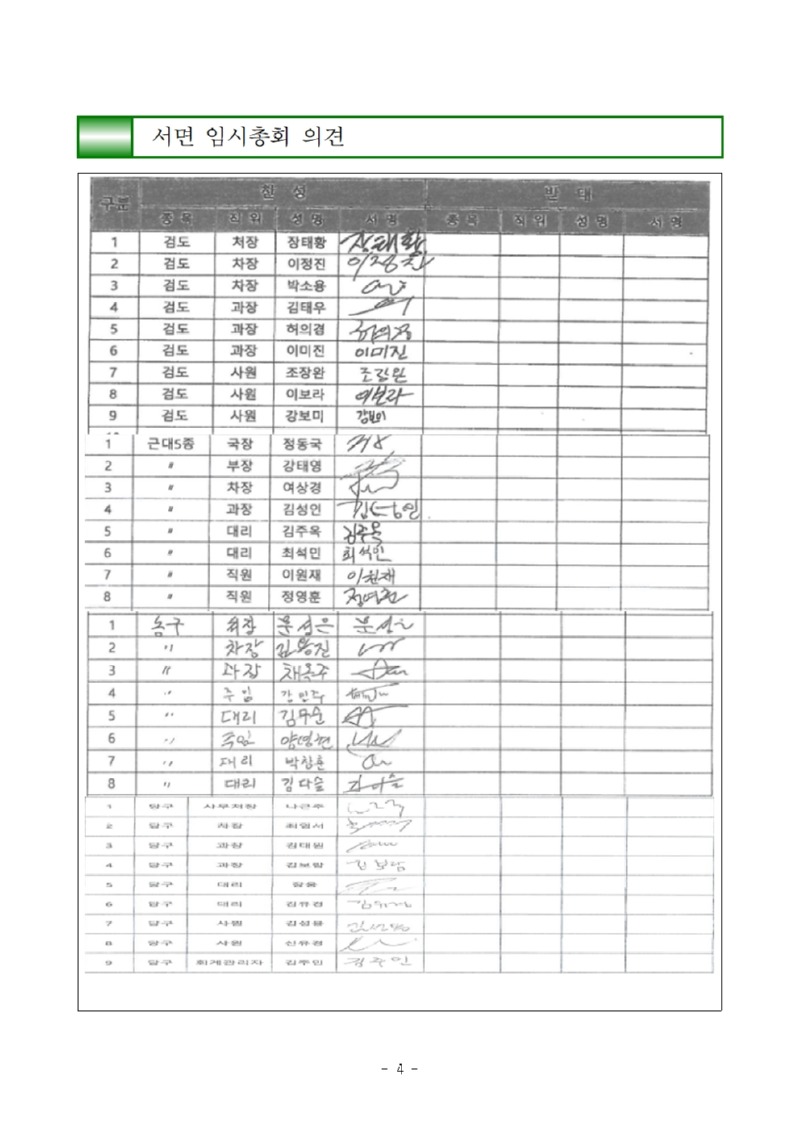 서면 임시총회 의견
구분 찬 성 반 대
종 목 직 위 성 명 서 명 종 목 직 위 성 명 서 명
1 검도 처장 장태황 장태황
2 검도 차장 이정진 이정진
3 검도 차장 박소용
4 검도 과장 김태우
5 검도 과장 허의경 허의경
6 검도 과장 이미진 이미진
7 검도 사원 조장완 조장완
8 검도 사원 이보라 이보라
9 검도 사원 강보미 강보미
1 근대5종 국장 정동국
2 〃 부장 강태영
3 〃 차장 여상경
4 〃 과장 김성인 김성인
5 〃 대리 김주옥 김주옥
6 〃 대리 최석민 최석민
7 〃 직원 이원재 이원재
8 〃 직원 정영훈 정영훈
1 농구 문성은 문성은
2 〃 차장 김용진
3 〃 과장 채옥주
4 〃 주임 강민주
5 〃 대리 김무순
6 〃 주임 양명현
7 〃 대리 박창훈
8 〃 대리 김다슬 김다슬
1 당구 사무처장 나근주
2 당구 차장 최엄서
3 당구 과장 김태원
4 당구 과장 김보람 김보람
5 당구 대리
6 당구 대리 김유경
7 당구 사원 김성용
8 당구 사원 신유경
9 당구 회계관리자 김주인 김주인
- 4 -